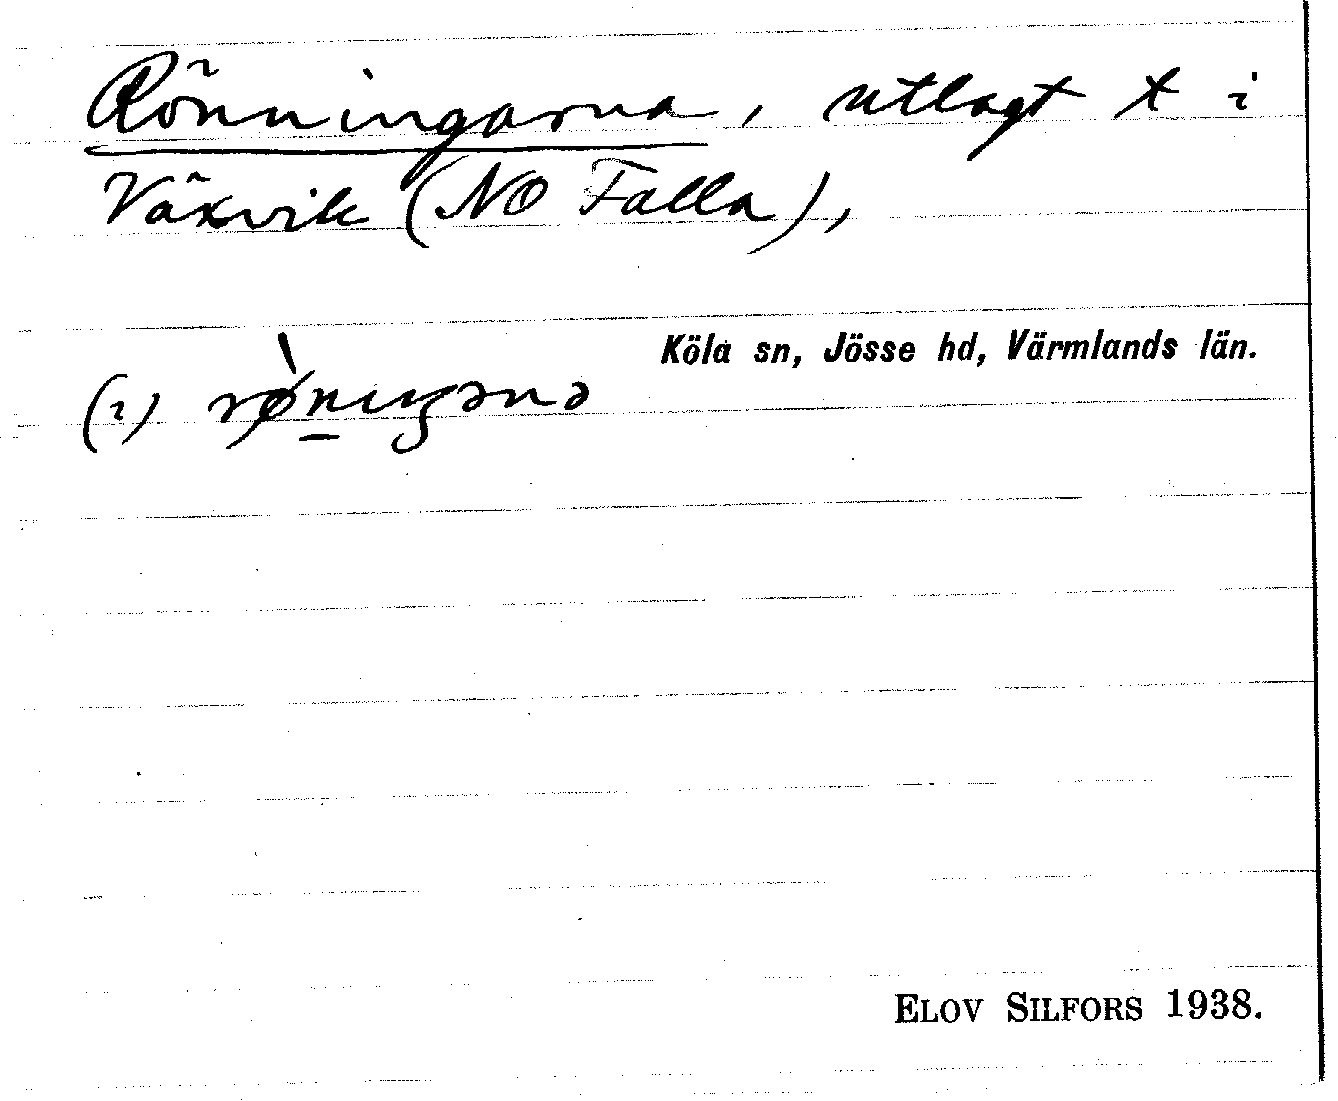 Rönningarna, utlagt t i
Växvik (NO Falla),
Köla sn, Jösse hd, Värmlands län.
(i)
ELOV SILFORS 1938.